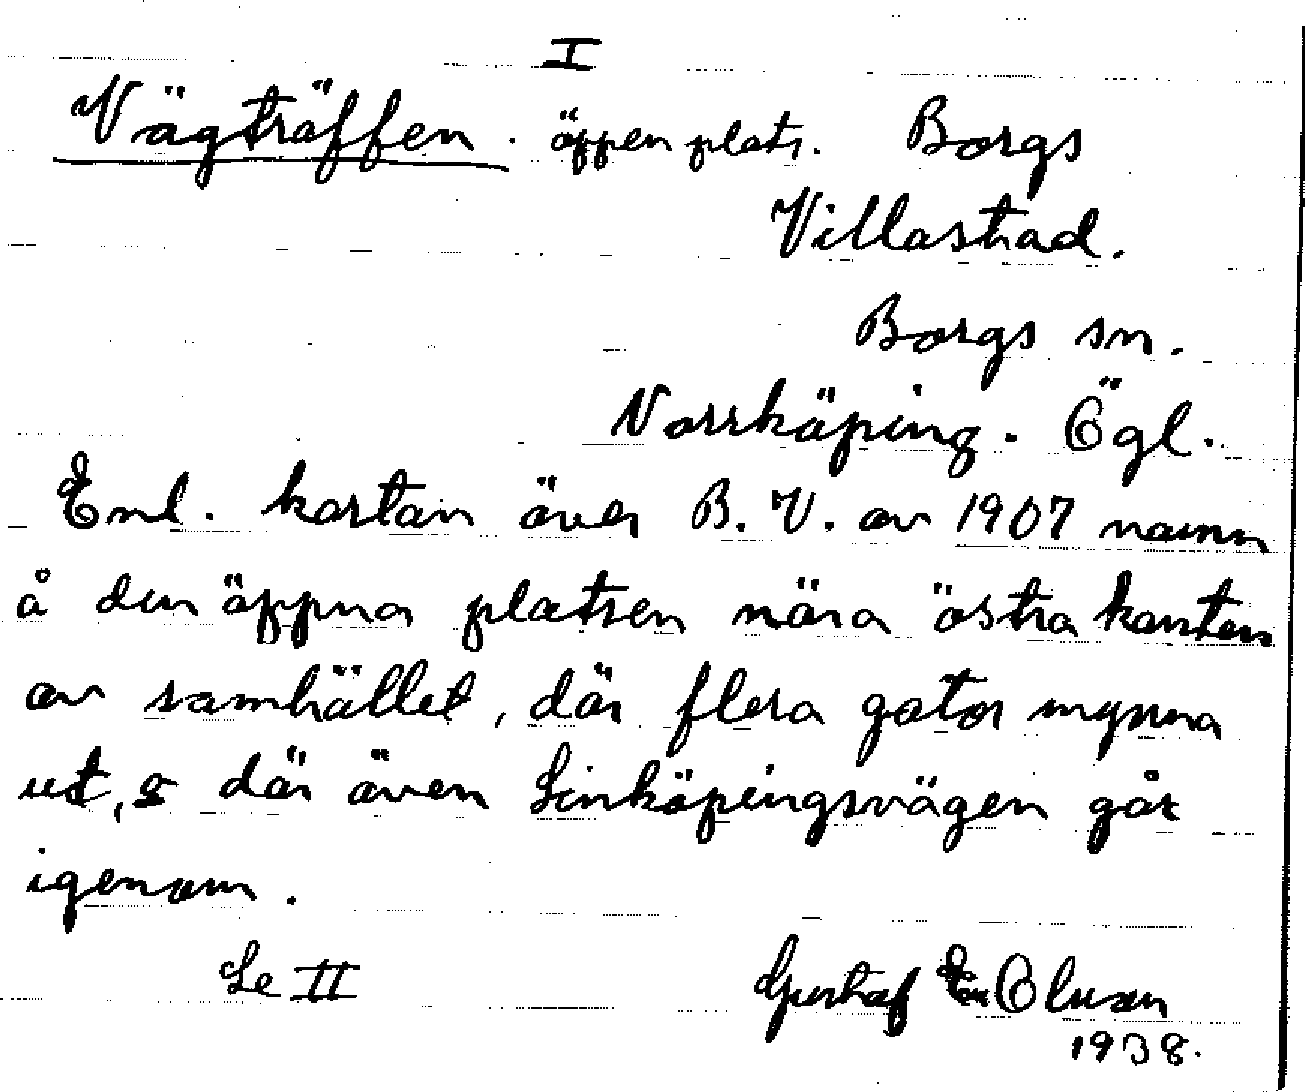 I
Vägträffen. öppen plats. Borgs
Villastad.
Borgs sn.
Norrköping. Ögl.
Enl. kartan över B. V. av 1907 namn
å den öppna platsen nära östra kanten
av samhället, där flera gator mynna
ut, o där även Linköpingsvägen går
igenom.
Se II Gustaf Olusson
1938.